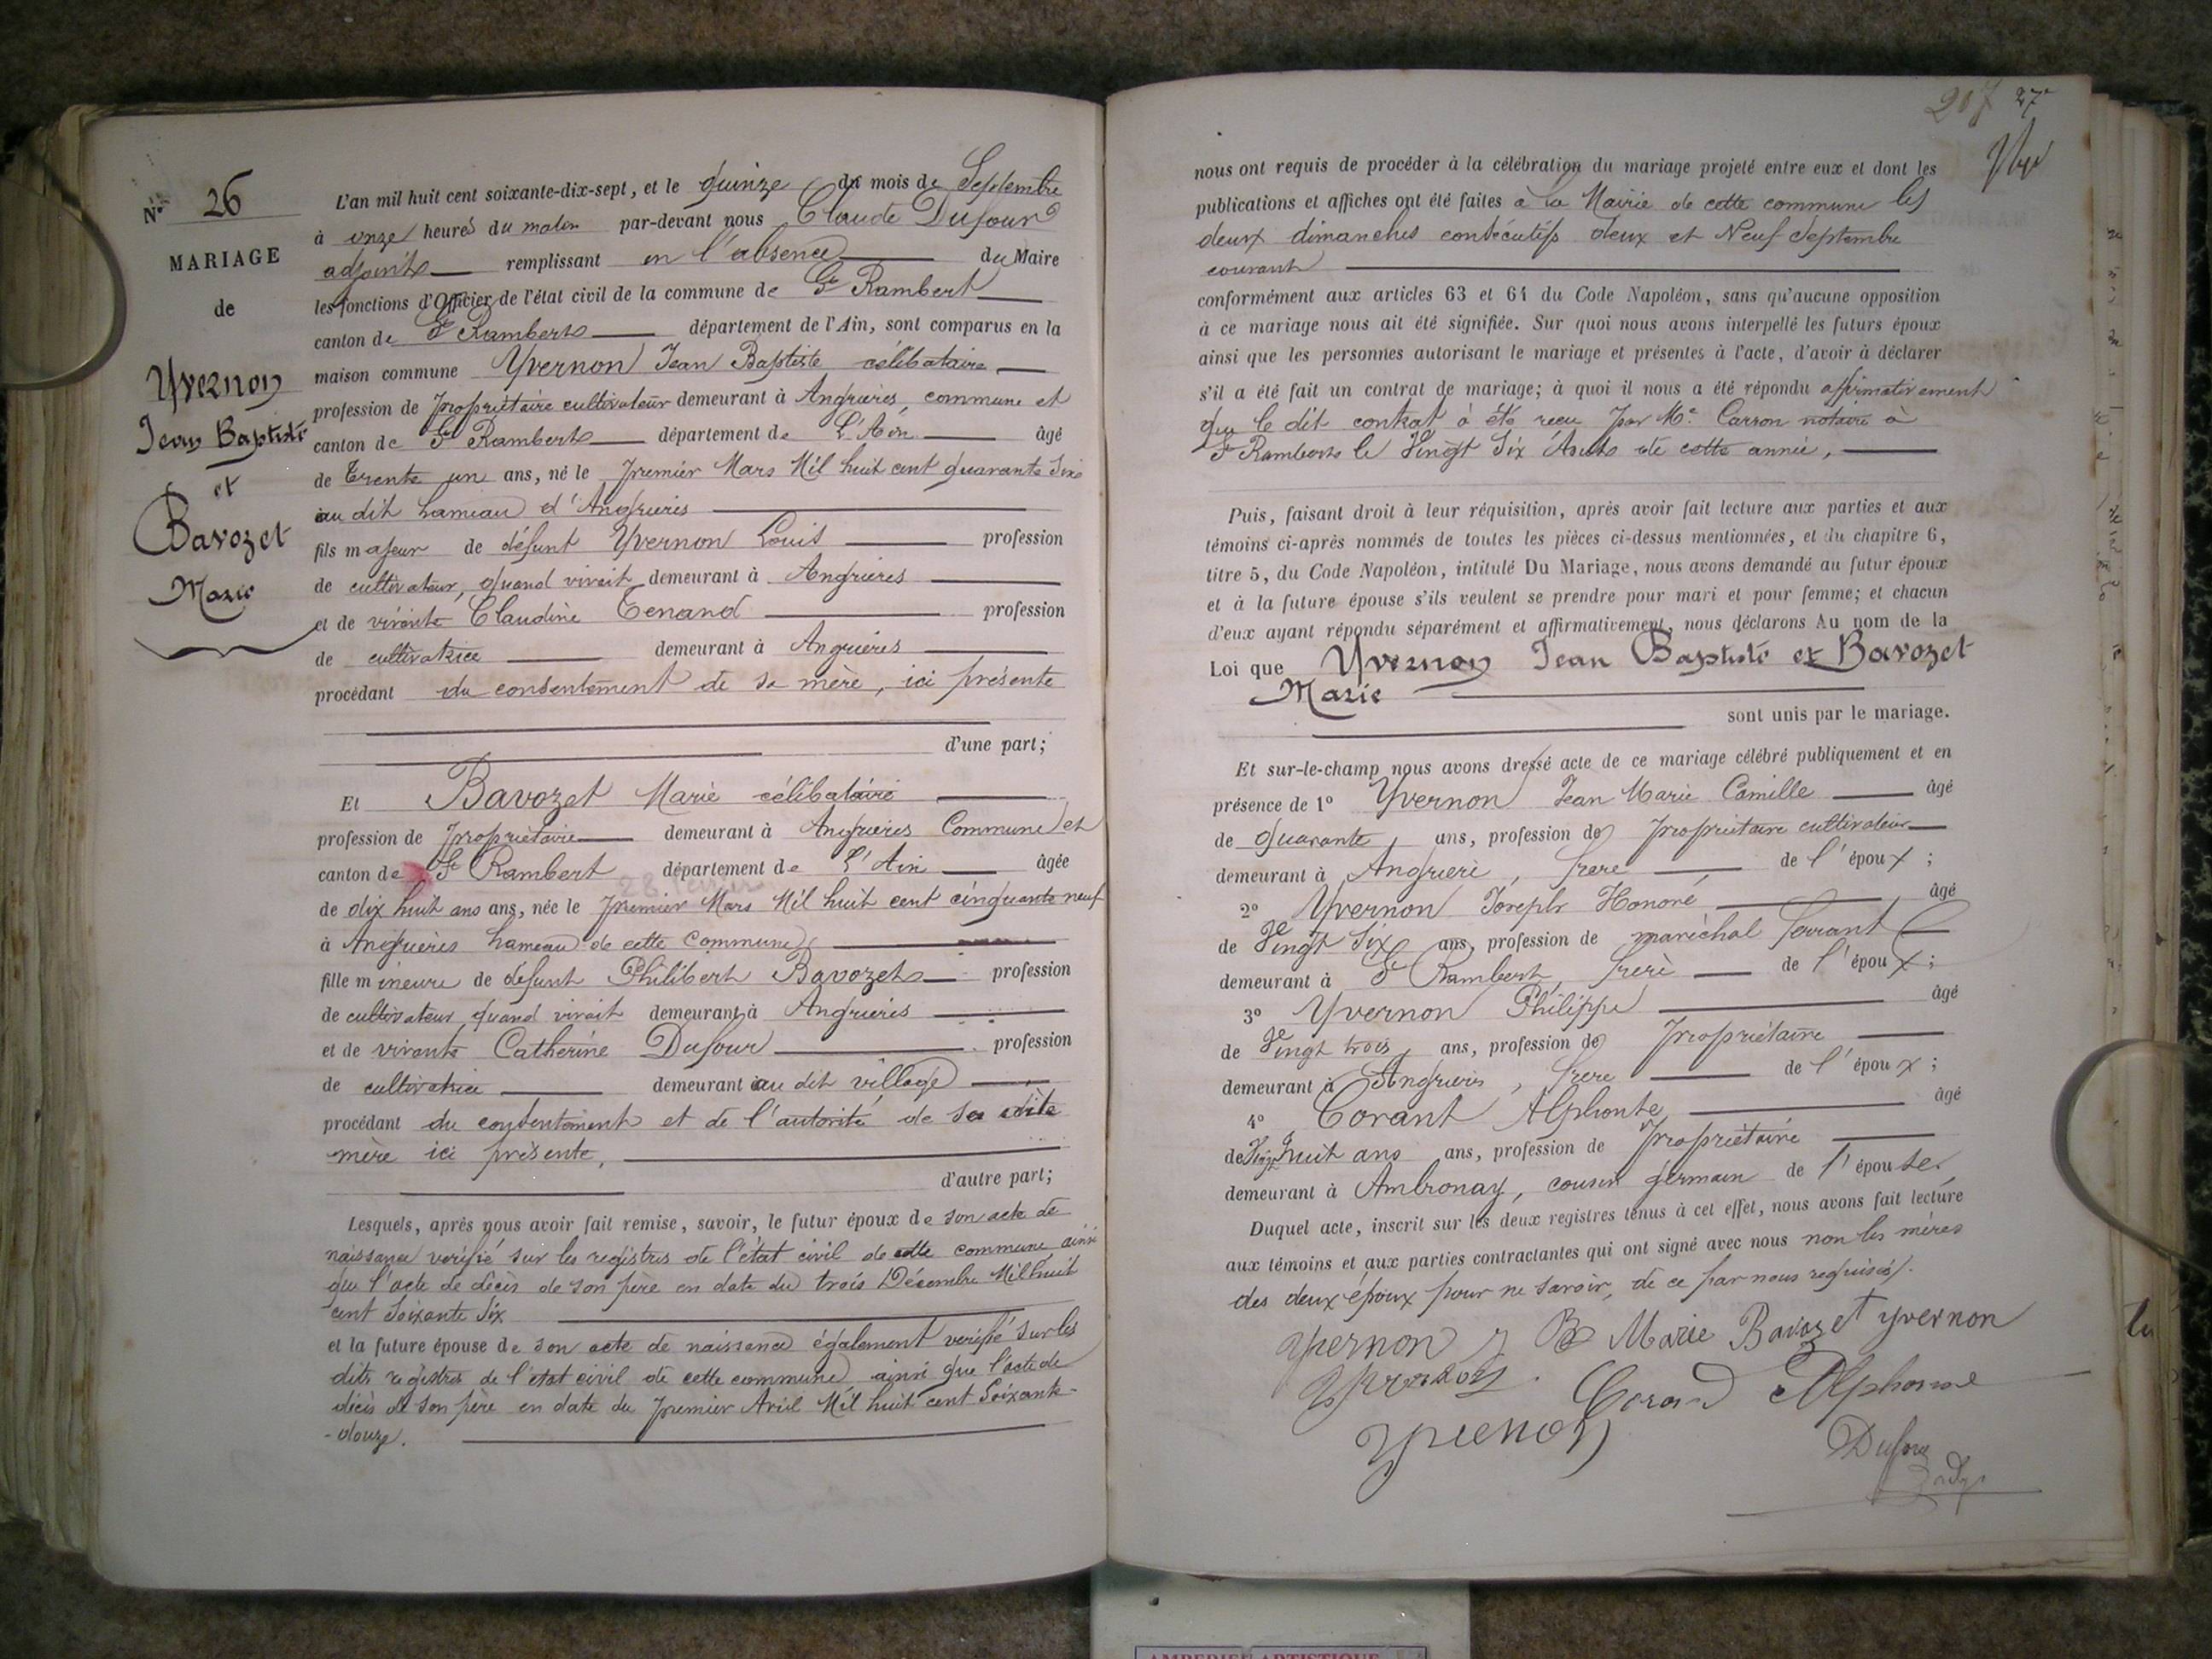 N° 26
MARIAGE
de
Yvernon
Jean Baptiste
et
Bavozet
Marie
L'an mil huit cent soixante-dix-sept, et le quinze du mois de Septembre
à onze heures du matin par-devant nous Claude Dufour
adjoint remplissant en l'absence du Maire
les fonctions d'Officier de l'état civil de la commune de St Rambert
canton de St Rambert département de l'Ain, sont comparus en la
maison commune Yvernon Jean Baptiste célibataire
profession de propriétaire cultivateur demeurant à Angrières, commune et
canton de St Rambert département de L'Ain âgé
de trente un ans, né le premier Mars Mil huit cent quarante six
au dit hameau d'Angrières
fils majeur de défunt Yvernon Louis profession
de cultivateur, quand vivait demeurant à Angrières
et de vivante Claudine Tenand profession
de cultivatrice demeurant à Angrières
procédant du consentement de sa mère, ici présente
d'une part;
Et Bavozet Marie célibataire
profession de propriétaire demeurant à Angrières Commune et
canton de St Rambert département de L'Ain âgée
28 février
de dix huit ans ans, née le premier Mars Mil huit cent cinquante neuf
à Angrières hameau de cette Commune
fille mineure de défunt Philibert Bavozet profession
de cultivateur quand vivait demeurant à Angrières
et de vivante Catherine Dufour profession
de cultivatrice demeurant au dit village
procédant du consentement et de l'autorité de sa dite
mère ici présente,
d'autre part;
Lesquels, après nous avoir fait remise, savoir, le futur époux de son acte de
naissance verifié sur les registres de l'état civil de cette commune ainsi
que l'acte de décès de son père en date du trois Décembre Mil huit
cent soixante six
et la future épouse de son acte de naissance également verifié sur les
dits registres de l'état civil de cette commune ainsi que l'acte de
décès de son père en date du premier Avril Mil huit cent soixante-
-douze.
207 27
nous ont requis de procéder à la célébration du mariage projeté entre eux et dont les
publications et affiches ont été faites à la Mairie de cette commune les
deux dimanches consécutifs deux et Neuf Septembre
courant
conformément aux articles 63 et 64 du Code Napoléon, sans qu'aucune opposition
à ce mariage nous ait été signifiée. Sur quoi nous avons interpellé les futurs époux
ainsi que les personnes autorisant le mariage et présentes à l'acte, d'avoir à déclarer
s'il a été fait un contrat de mariage; à quoi il nous a été répondu affirmativement
que le dit contrat à été reçu par Me Carron notaire à
St Rambert le Vingt Six Août de cette année,
Puis, faisant droit à leur réquisition, après avoir fait lecture aux parties et aux
témoins ci-après nommés de toutes les pièces ci-dessus mentionnées, et du chapitre 6,
titre 5, du Code Napoléon, intitulé Du Mariage, nous avons demandé au futur époux
et à la future épouse s'ils veulent se prendre pour mari et pour femme; et chacun
d'eux ayant répondu séparément et affirmativement, nous déclarons Au nom de la
Loi que Yvernon Jean Baptiste et Bavozet
Marie
sont unis par le mariage.
Et sur-le-champ nous avons dressé acte de ce mariage célébré publiquement et en
présence de 1° Yvernon Jean Marie Camille âgé
de quarante ans, profession de propriétaire cultivateur
demeurant à Angrière, frere de l'époux;
2° Yvernon Joseph Honoré âgé
de Vingt Six ans, profession de maréchal ferrant
demeurant à St Rambert, frère de l'époux;
3° Yvernon Philippe âgé
de Vingt trois ans, profession de Propriétaire
demeurant à Angrières, frere de l'époux;
4° Corant Alphonse âgé
de Vingt huit ans ans, profession de Propriétaire
demeurant à Ambronay, cousin germain de l'épouse.
Duquel acte, inscrit sur les deux registres tenus à cet effet, nous avons fait lecture
aux témoins et aux parties contractantes qui ont signé avec nous non les mères
des deux époux pour ne savoir, de ce par nous requises.
yvernon J B Marie Bavozet yvernon
Yvernon Corand Alphonse
yvernon
Dufour
adj.
AMBERIEU ARTISTIQUE